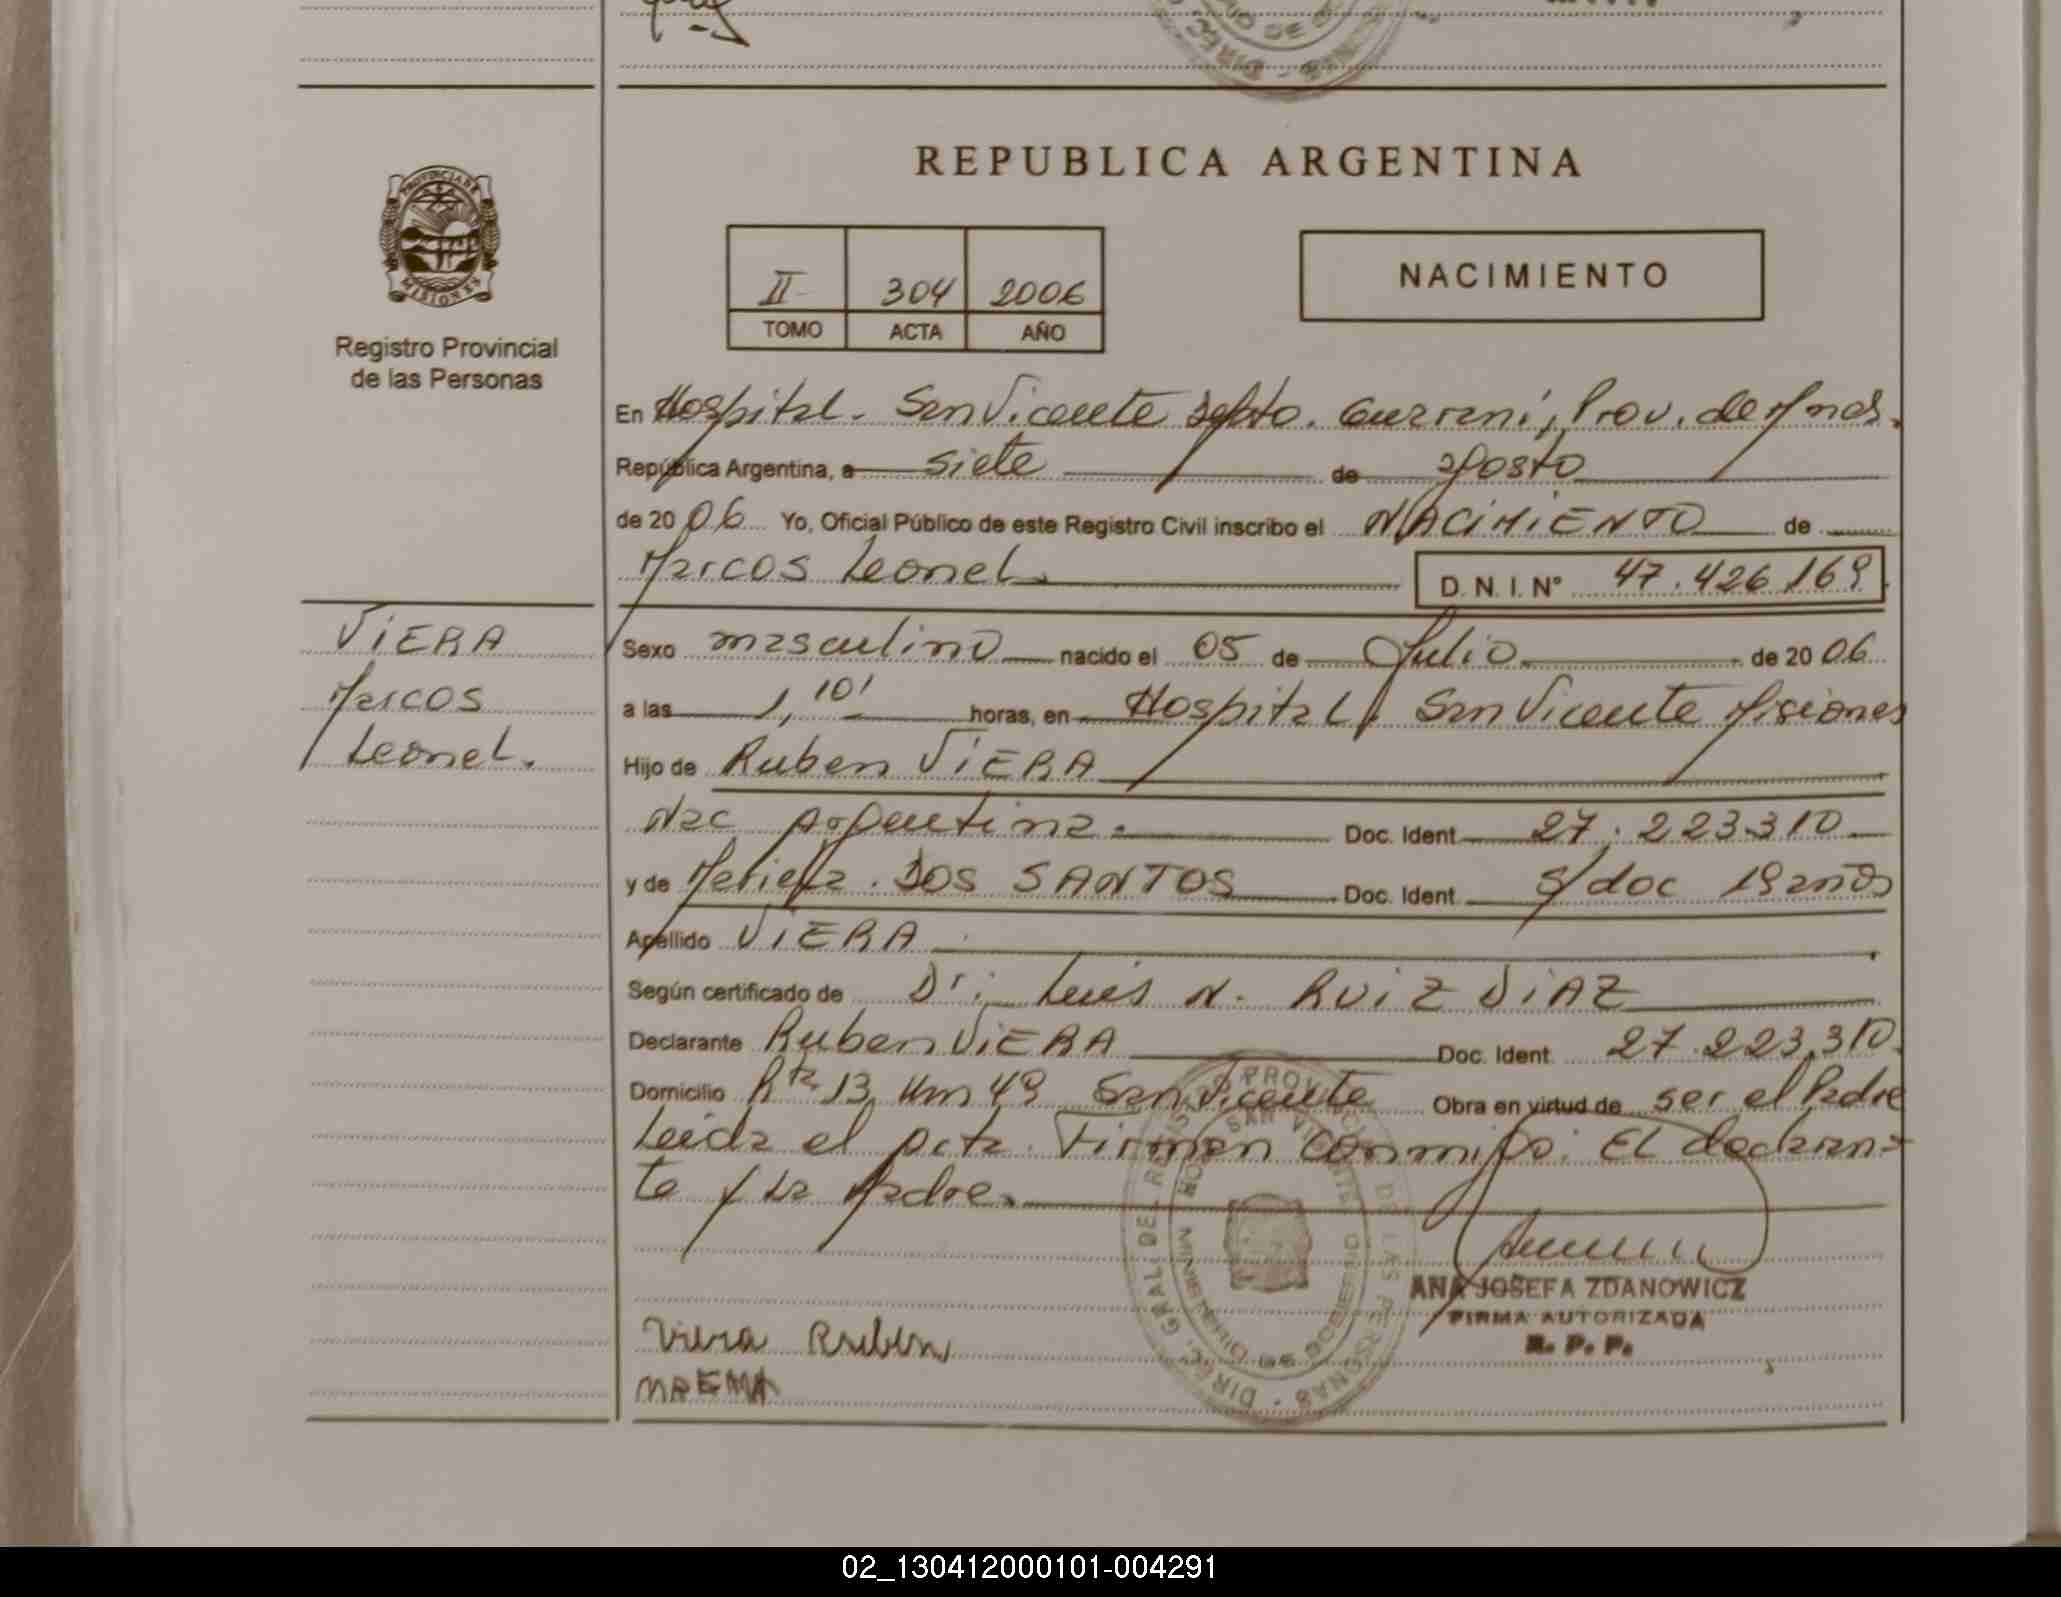 REPUBLICA ARGENTINA
PROVINCIA DE MISIONES
Registro Provincial
de las Personas
II 304 2006
TOMO ACTA AÑO
NACIMIENTO
En Hospital - San Vicente Depto. Guarani, Prov. de Mnes.
República Argentina, a siete de agosto
de 2006 Yo, Oficial Público de este Registro Civil inscribo el NACIMIENTO de
Marcos Leonel
D. N. I. N° 47.426.169
VIERA
Marcos
Leonel.
Sexo masculino nacido el 05 de Julio de 2006
a las 1,10' horas, en Hospital, San Vicente Misiones
Hijo de Ruben VIERA
Nac Argentina. Doc. Ident 27.223.310
y de DOS SANTOS Doc. Ident. s/doc 19 años
Apellido VIERA
Según certificado de Dr: Luis N. RUIZ DIAZ
Declarante Ruben VIERA Doc. Ident 27.223.310
Domicilio Rta 13 Km 49 San Vicente Obra en virtud de ser el Padre
Leida el acta. Firman conmigo: El declaran-
te y la Madre.
DIREC. GRAL. DEL REGISTRO PROVINCIAL DE LAS PERSONAS
ANA JOSEFA ZDANOWICZ
FIRMA AUTORIZADA
R. P. P.
Viera Ruben
02_130412000101-004291